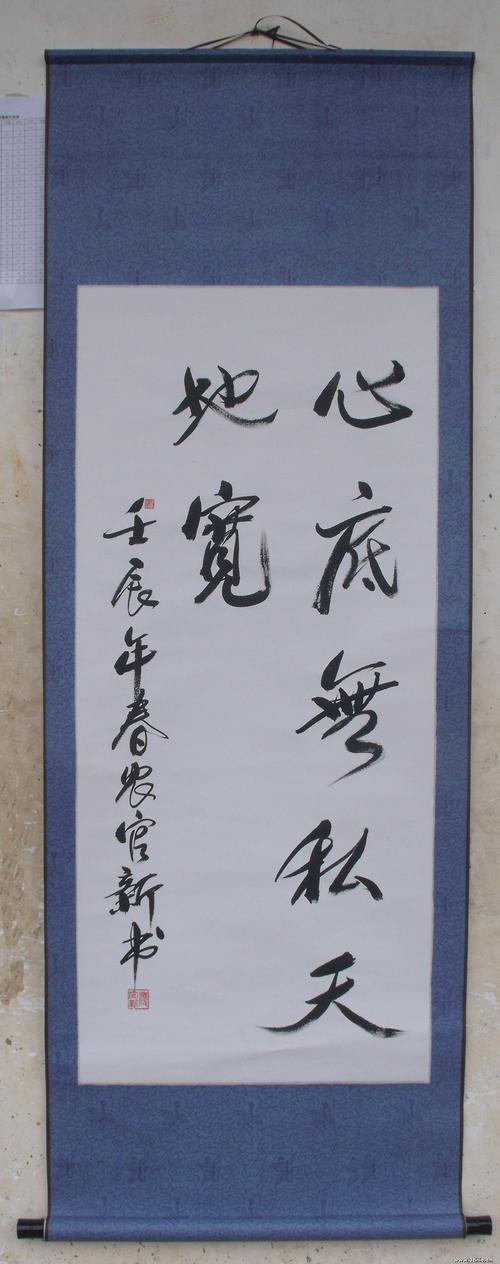 心底無私天
地寬
壬辰年春农官新书